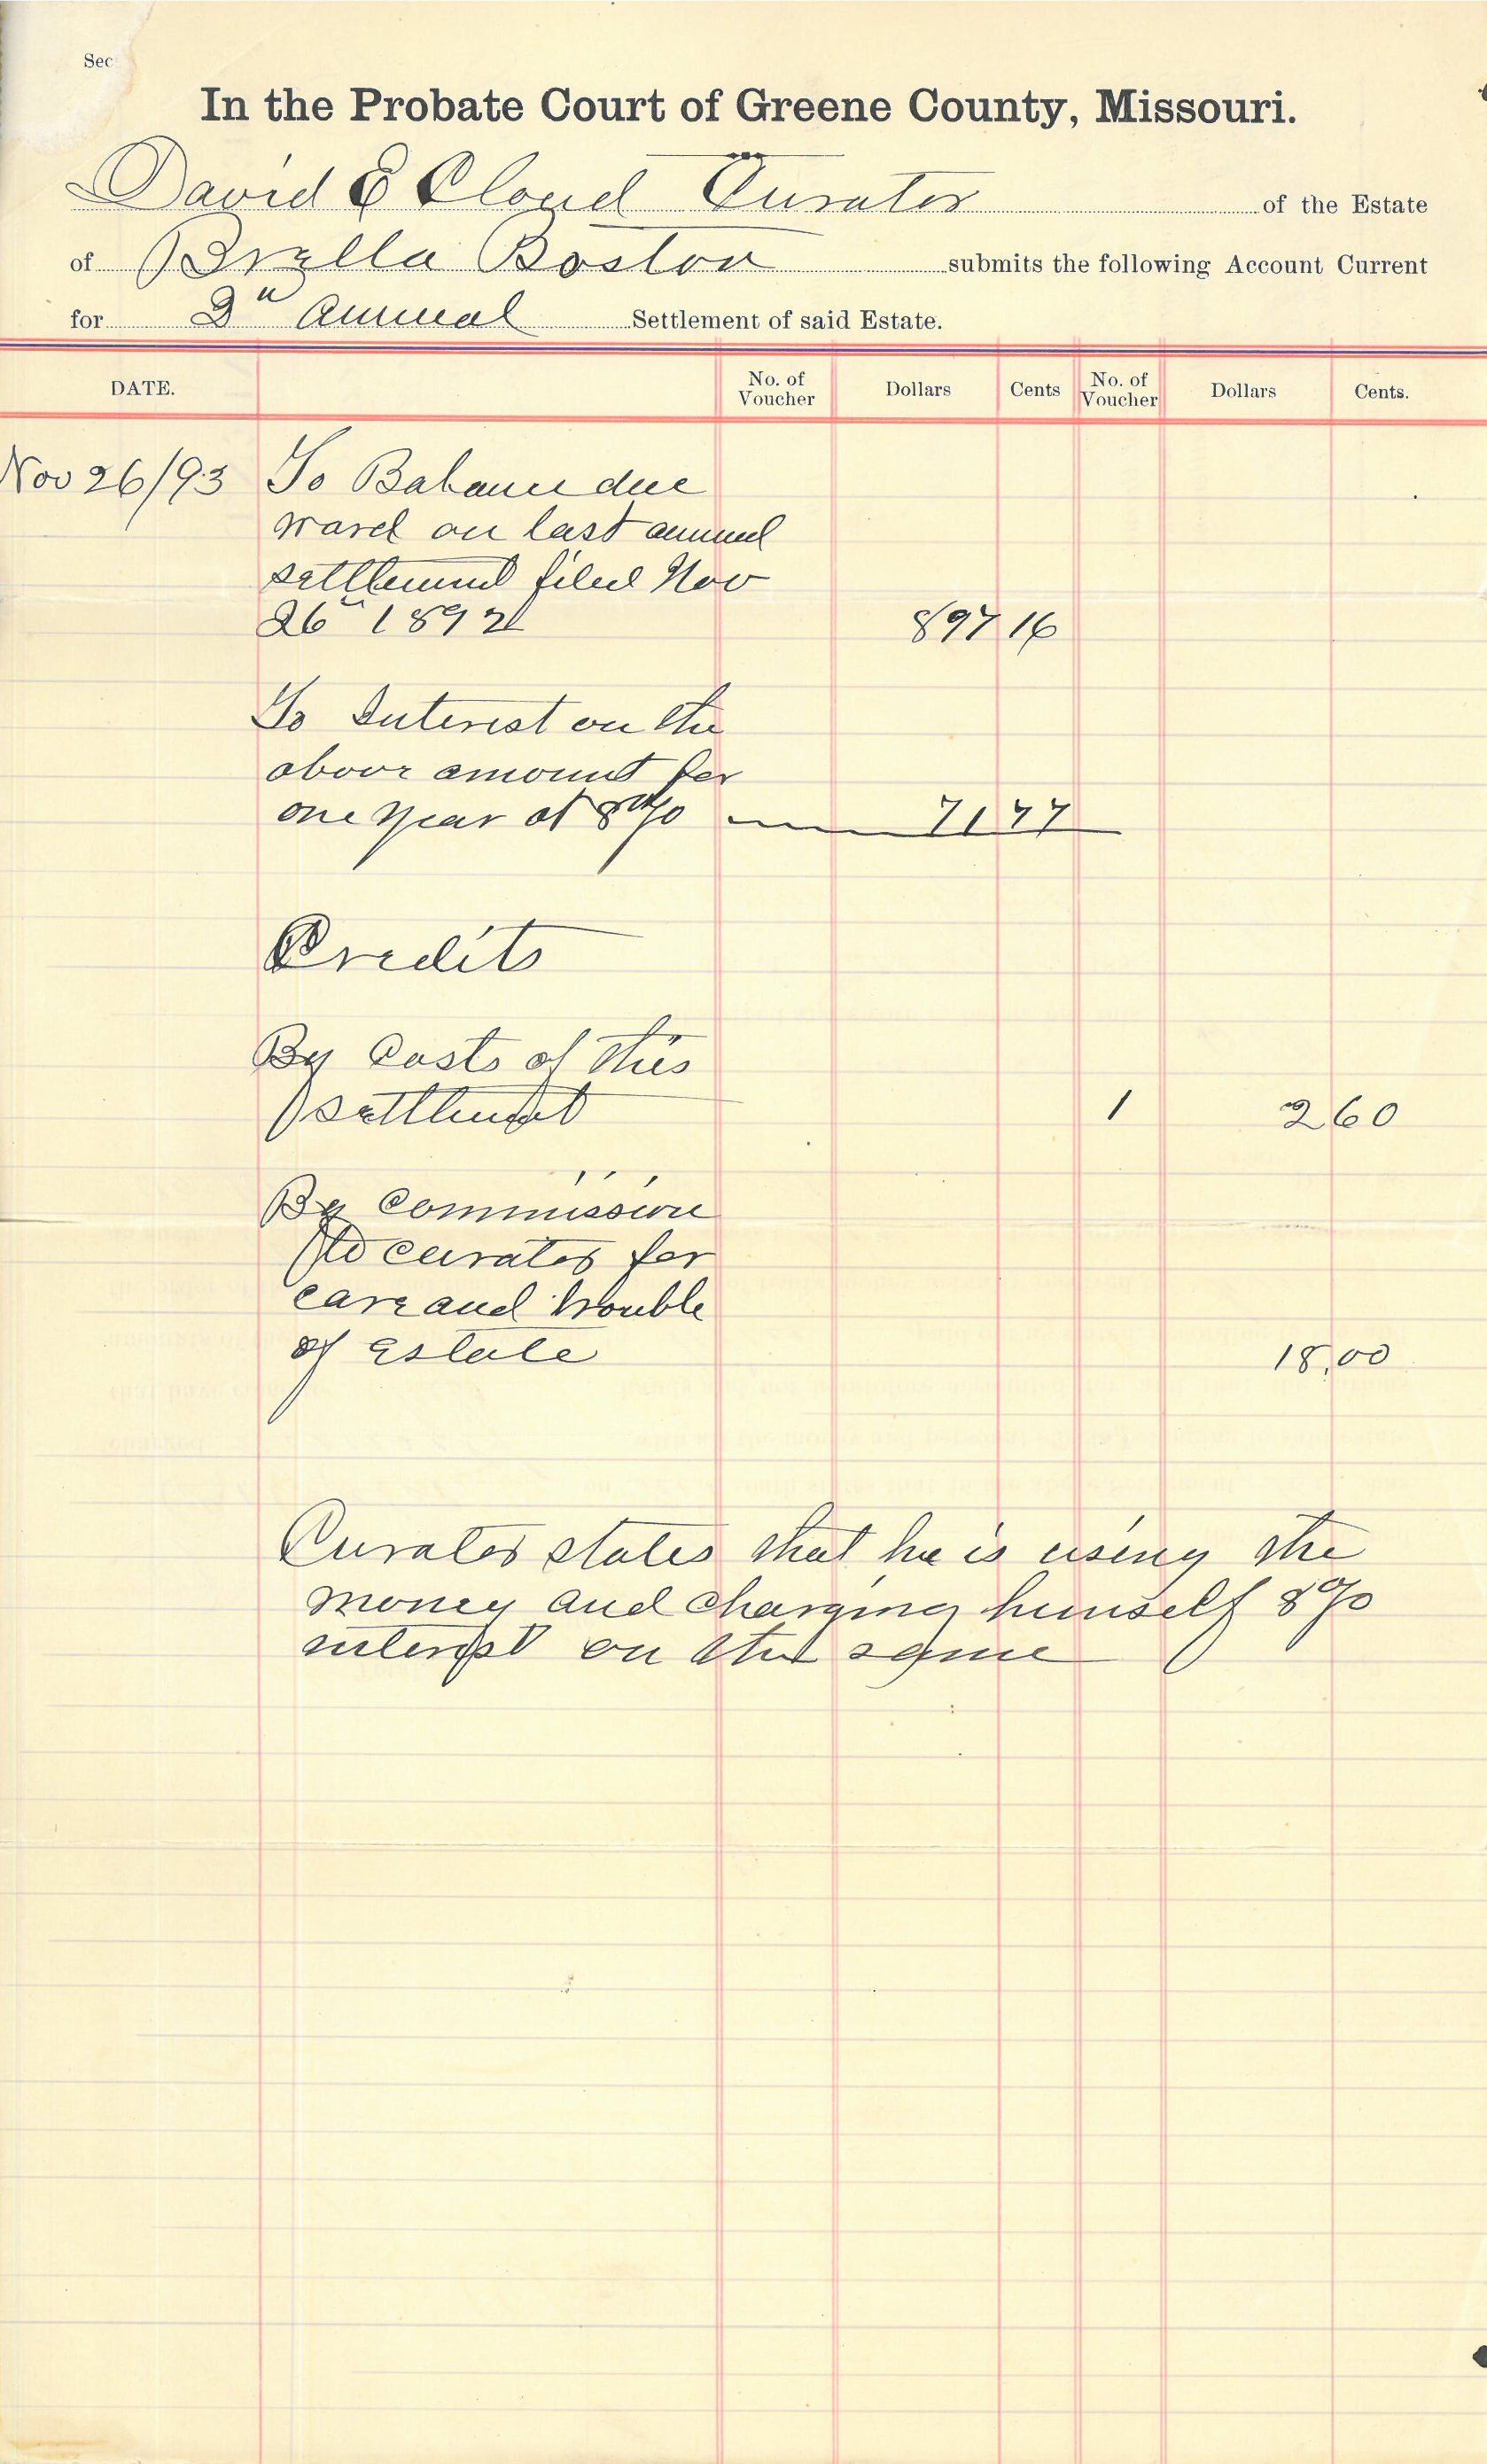 Sec
In the Probate Court of Greene County, Missouri.
David E Cloud Curator of the Estate
of Boston submits the following Account Current
for Annual Settlement of said Estate.
DATE. No. of Voucher Dollars Cents No. of Voucher Dollars Cents.
Nov 26/93 To Balance due
ward on last annual
settlement filed Nov
26" 1892 897 16
To Interest on the
above amount for
one year at 8% 71 77
Credits
By Costs of this
settlement 1 2 60
By Commission
to curator for
care and trouble
of Estate 18,00
Curator states that he is using the
money and charging himself 8%
interest on the same